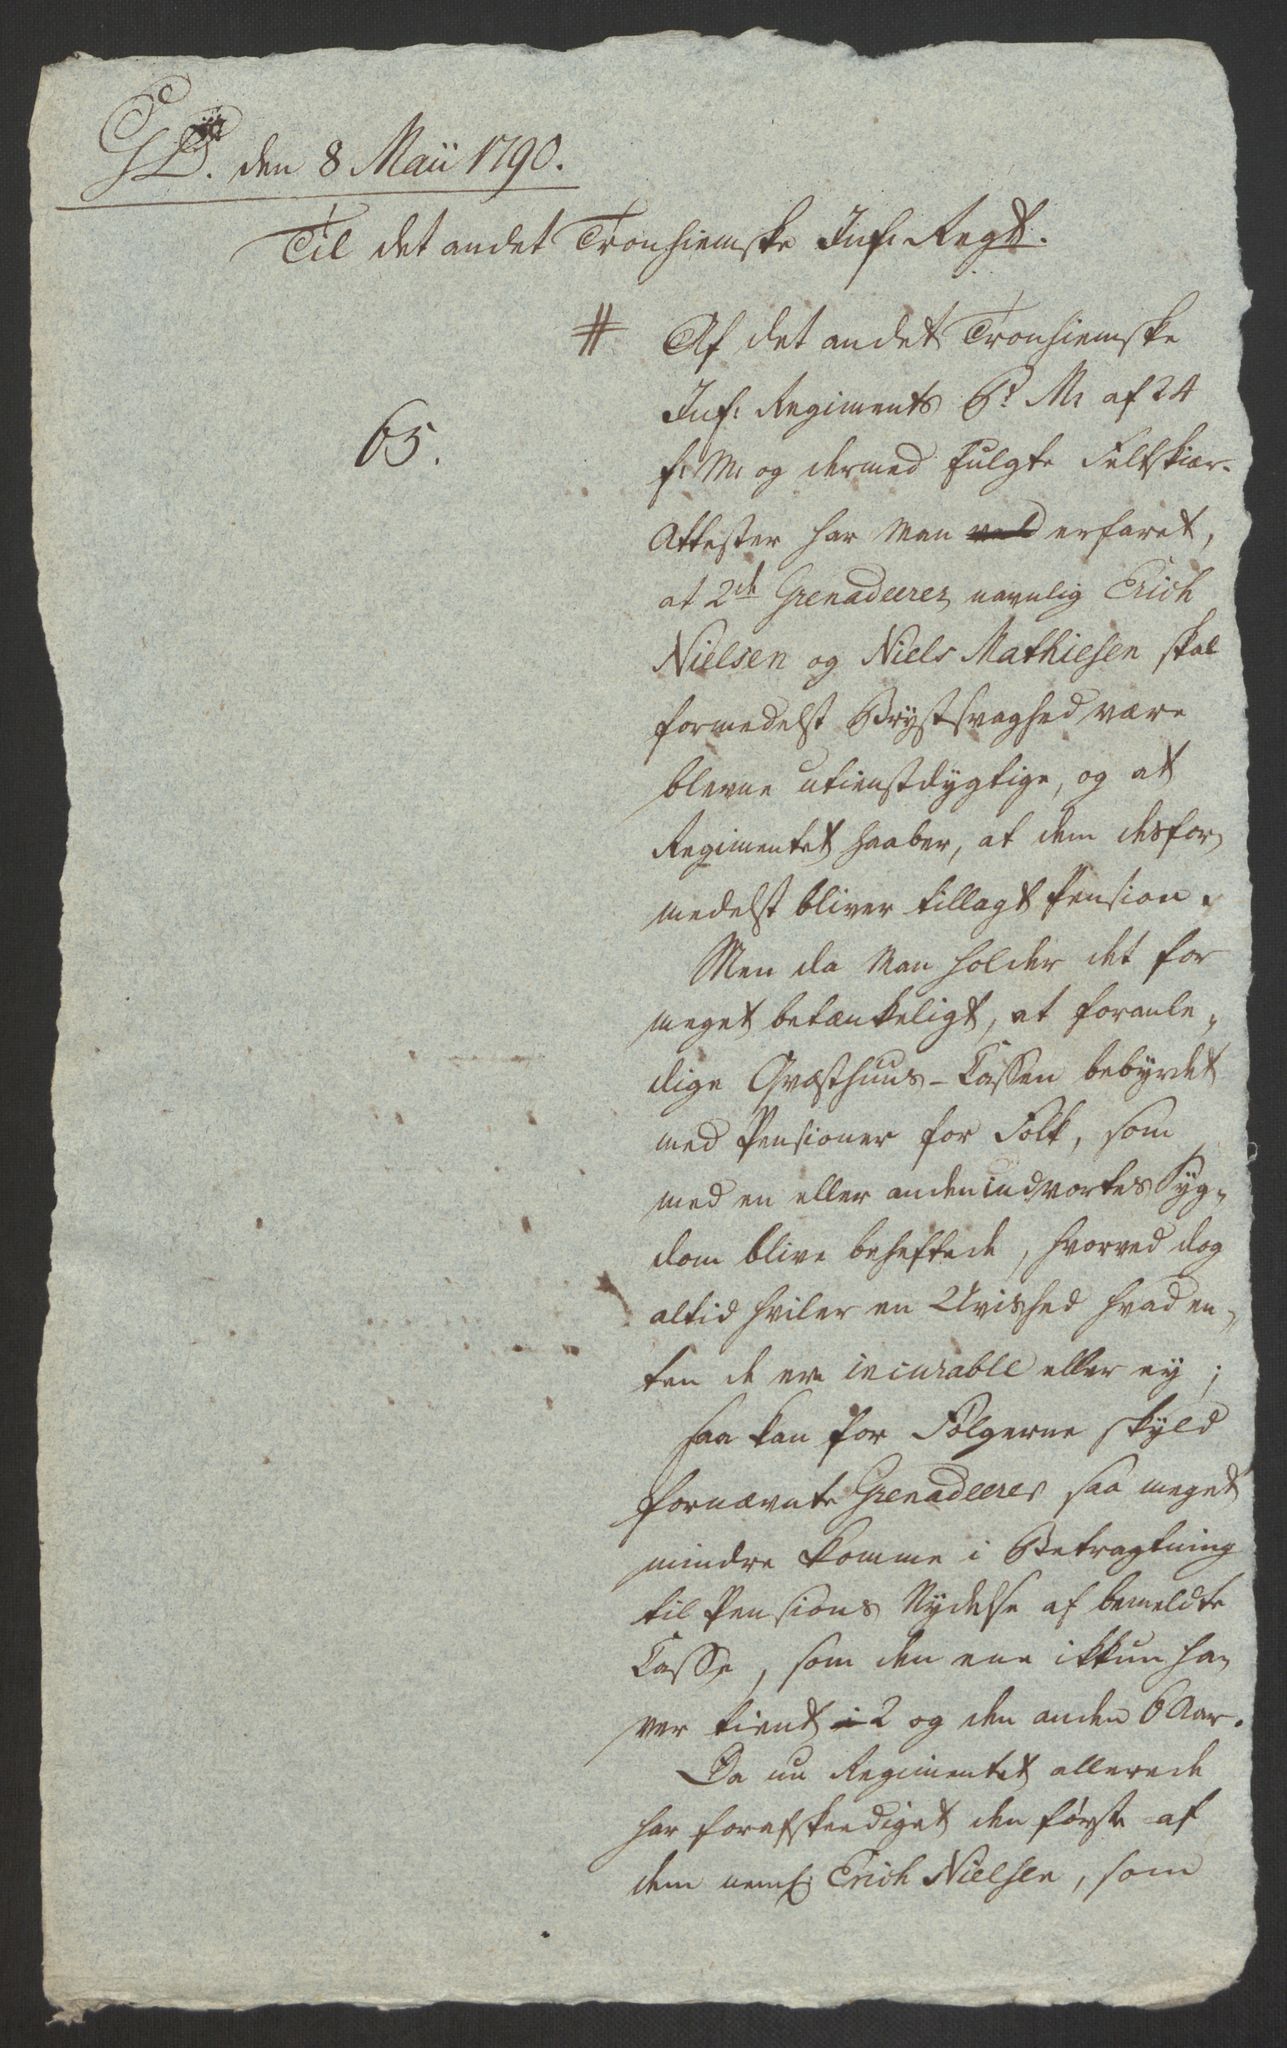 den 8 Maii 1790.
Til det andet Tronhiemske Inf: Regt.
65.
# Af det andet Tronhiemske
Inf: Regiments P: M: af 24
f: M: og dermed fulgte Feltskiær-
Attester har Man erfaret,
at 2de Grenadeerer navnlig Erich
Nielsen og Niels Mathiesen skal
formedelst Brystsvaghed være
blevne utienstdygtige, og at
Regimentet haaber, at dem desfor-
medelst bliver tillagt Pension.
Men da Man holder det for
meget betænkeligt, at foranle-
dige Qvæsthuus-Cassen bebyrdet
med Pensioner for Folk, som
med en eller anden indvortes Syg-
dom blive beheftede, hvorved dog
altid hviler en Uvished hvad en-
ten de ere incurable eller ey;
saa kan for Følgerne skyld
fornævnte Grenadeerer saa meget
mindre komme i Betragtning
til Pensions Nydelse af bemeldte
Casse, som den ene ikkun ha-
ver tient 2 og den anden 6 Aar.
Da nu Regimentet allerede
har forafskeediget den første af
dem neml: Erich Nielsen, som